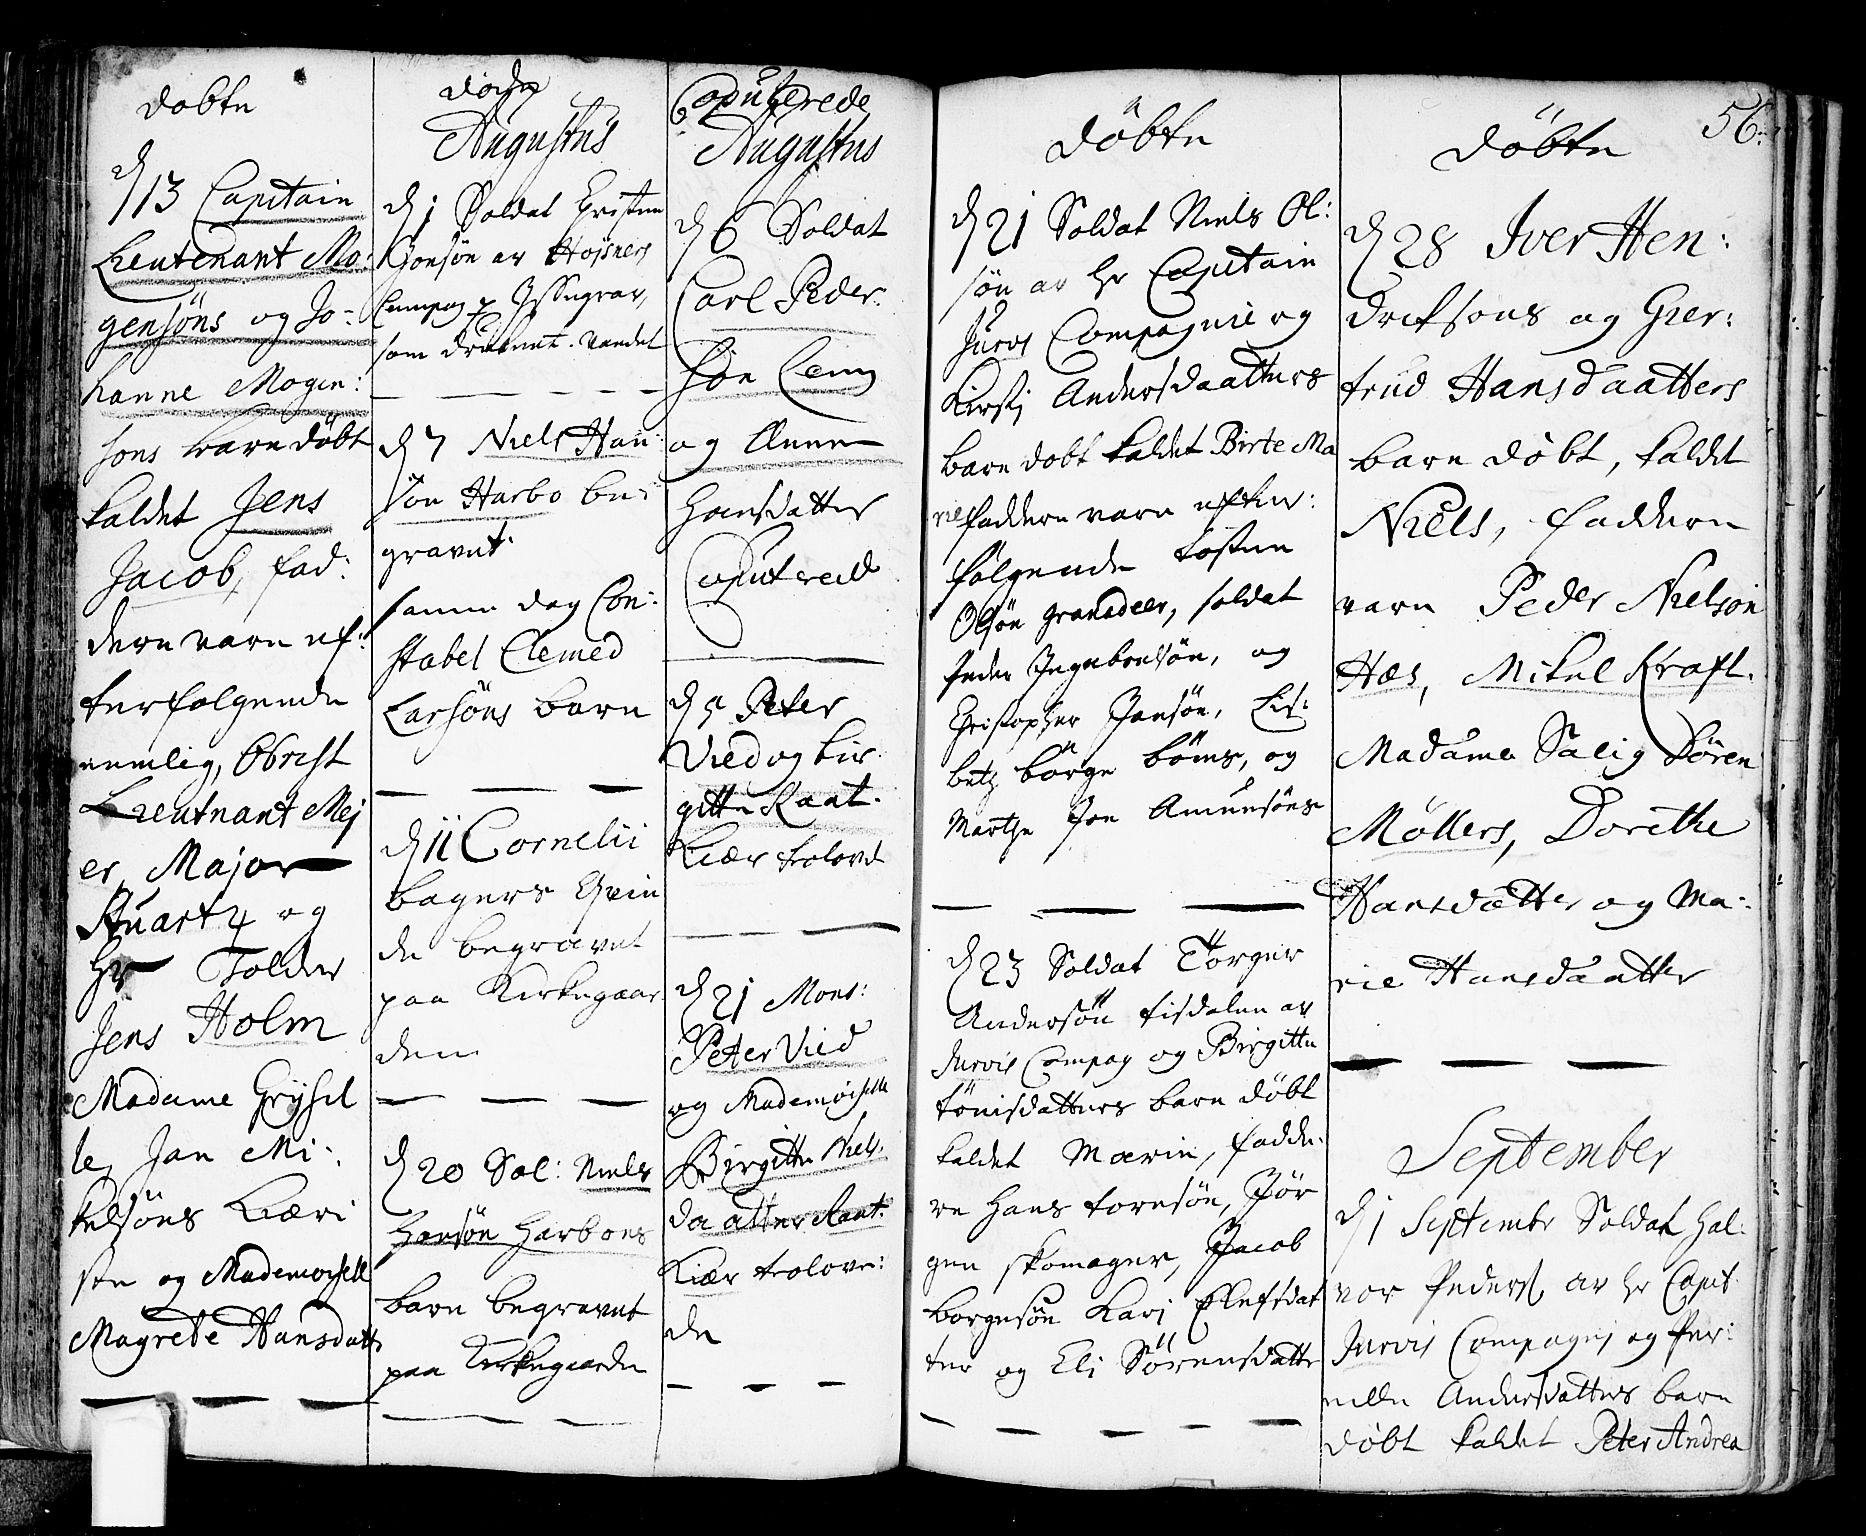 döbte
d 13 Capitain
Lieutenant Mo:
gensöns og Jo:
hanne Mogen:
söns barn döbt
kaldet Jens
Jacob, fad:
dern varn ef:
terfolgende
nemlig, Obrist
Lieutnant Mej
er, Major
Stuart og
Hr Tolder
Jens Holm
Madame Grÿsel
le, Jan Mi:
kelsöns Kieri
ste og Mademoisell
Magrete Hansdatt
döde
Augustus
d 1 Soldat Christen
Jonsön av Hoÿsners
Compag
som druknet. vandet
d 7 Niels Han:
sön Harbo be:
gravet.
samme dag Con:
stabel Clemed
Larsöns barn
d 11 Cornelii
bagers Qvin
de begravet
paa Kirkegaar
den
d 20 Sol: Niels
Hansön Harboes
barn begravet
paa Kirkegaarden
Coputerede
Augustus
d 6 Soldat
Carl Peder
sön
og Anne
Hansdatter
Coputered
d 5 Peter
Vied og bir
gitte Rant.
Kiær trolovd
d 21 Mons:
Peter Vied
og Mademoiselle
Birgitte Niels
daatter Rant.
Kiær trolove:
de
56.
döbte
d 21 Soldat Niels Ol:
sön av hr Capitain
Jurvs Compagnie og
Kirstj Andersdaatters
barn dobt kaldet Birte Ma
rie faddern varn efter:
folgende Tosten
Olsön granadeer, soldat
Peder Ingebretsön, og
Christopher Jansön, Lis:
beth börge böms, og
Marthe Jon Amunsöns
d 23 Soldat Törger
Andersön fisdalen av
Jurvis Compag og Birgitte
tönisdatters barn döbt
kaldet Marin, fadde:
re Hans toresön, Jör
gen skomager, Jacob
borgesön Kari Elefsdat
ter og Eli Sörensdatte
döbte
d 28 Iver Hen:
driksons og Gier:
trud Hansdaatters
barn döbt, kaldet
Niels, faddern
varn Peder Nielsön
Hæs, Mikel Kraft.
Madame Salig Sören
Möllers, Dorethe
Hansdatter og Ma:
rie Hansdaatter
September
d 1 Septembr Soldat Hal:
vor Peders av hr Capit
Jurvis Compagnj og Per:
nille Andersdatters barn
döbt kaldet Peter Andrea